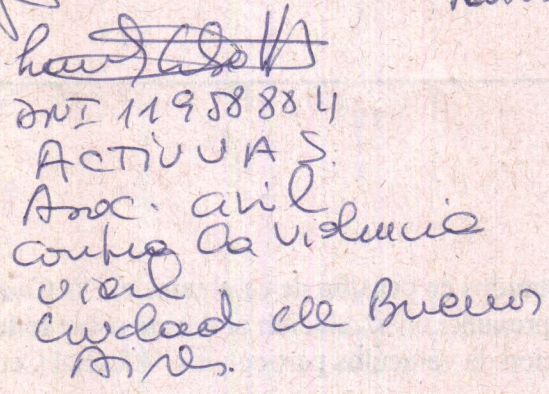 DNI 11958884
ACTIVVAS.
Asoc. civil
contra la violencia
vial
ciudad de Buenos
Aires.